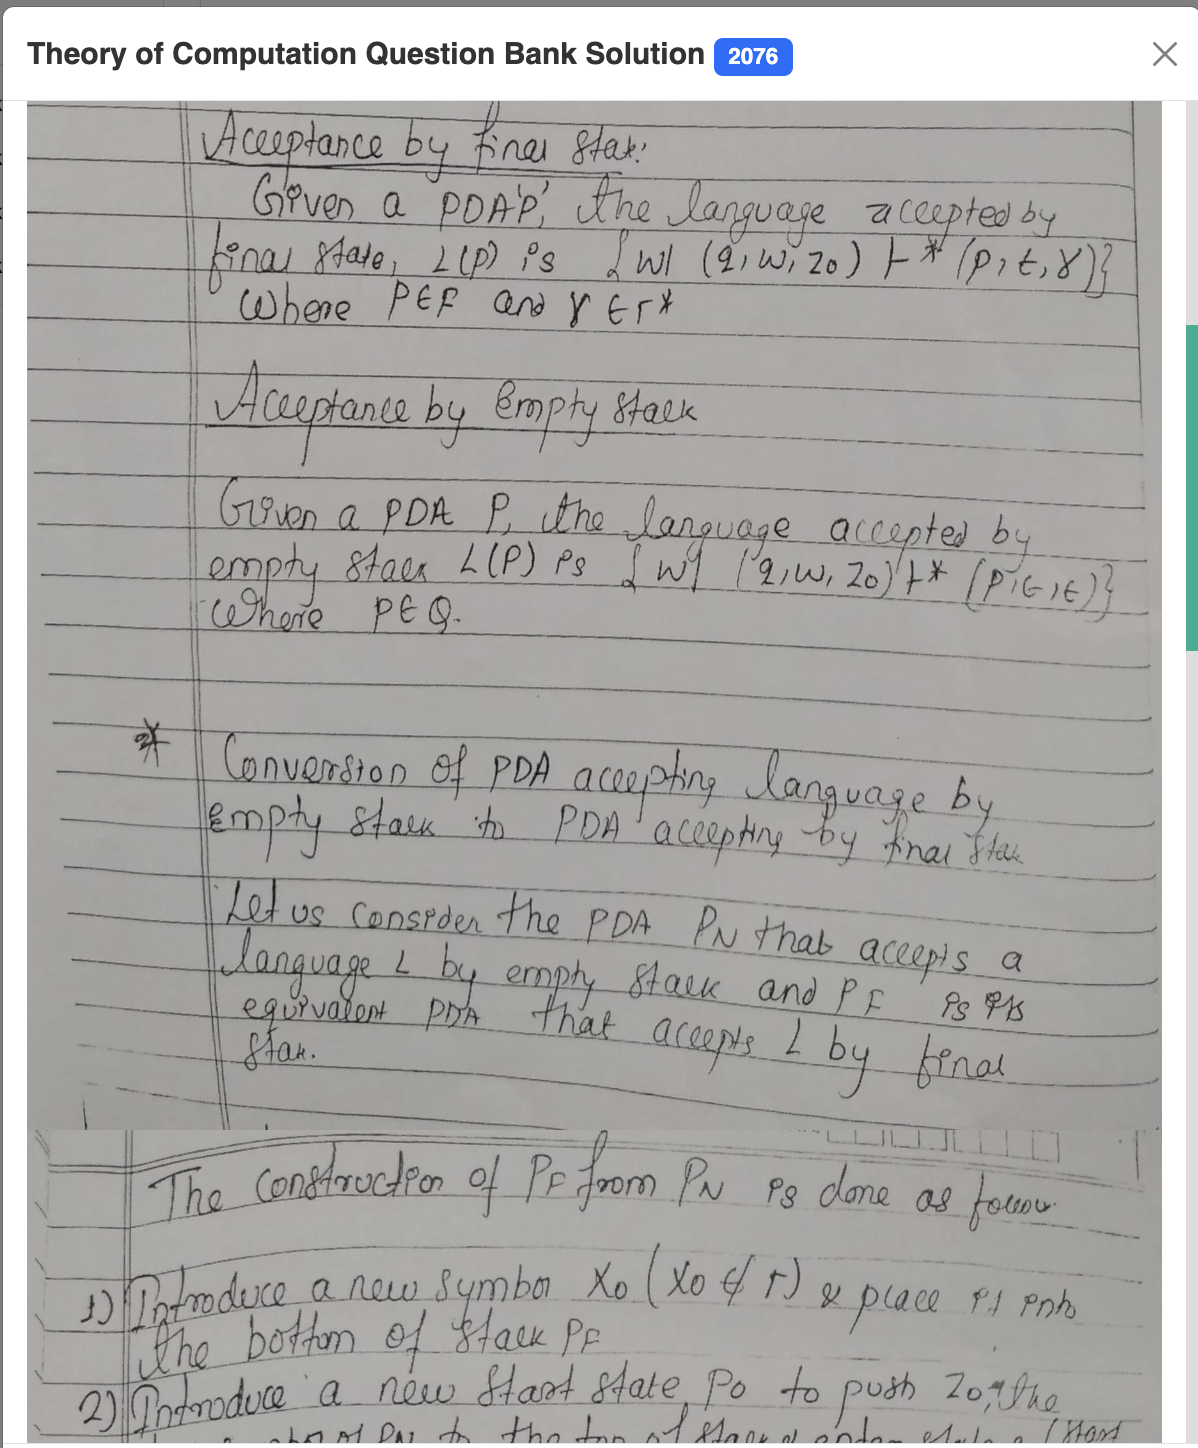 Theory of Computation Question Bank Solution 2076
Acceptance by final state:
Given a PDA 'P', the language accepted by
final state, L(P) is {w| (q, w, z0) ⊢* (p, ε, γ)}
Where P∈F and γ ∈ Γ*
Acceptance by Empty Stack
Given a PDA P, the language accepted by
empty stack L(P) is {w| (q, w, z0) ⊢* (p, ε, ε)}
Where P∈Q.
* Conversion of PDA accepting language by
Empty stack to PDA accepting by final state
Let us consider the PDA PN that accepts a
language L by empty stack and PF is its
equivalent PDA that accepts L by final
state.
The construction of PF from PN is done as follow
1) Introduce a new symbol X0 (X0 ∉ Γ) & place it into
the bottom of stack PF
2) Introduce a new start state P0 to push Z0, the
of PN to the top of stack & enter state (start